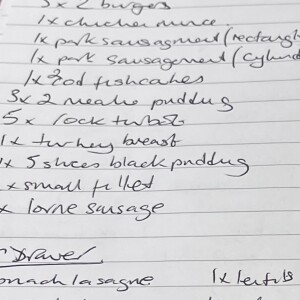 3 x 2 burgers
1 x chicken mince
1 x pork sausagment (rectangl
1 x pork sausagement (cylind
1 x cod fishcakes
3 x 2 mealie puddug
5 x
1 x turkey breast
1 x 5 slices black puddug
x small filled
x lorne sausage
Drawer
lasagne 1 x